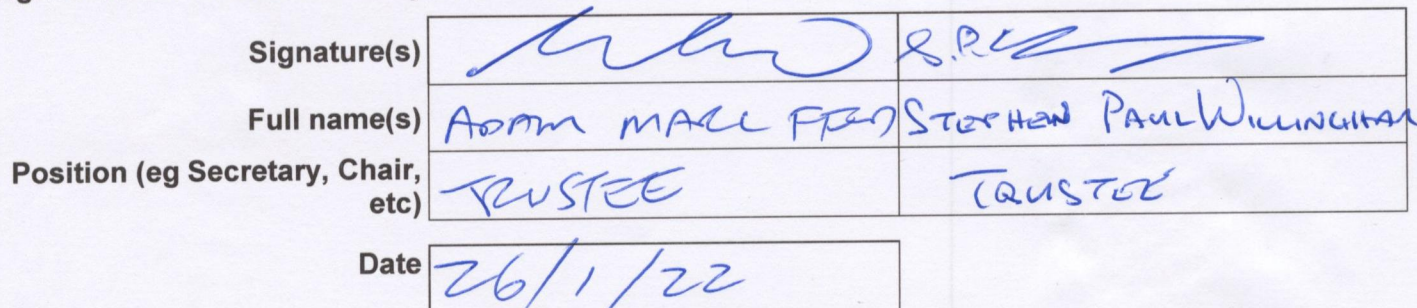 Signature(s) S.P.
Full name(s) ADAM MARC STEPHEN PAUL WILLINGHAM
Position (eg Secretary, Chair,
etc) TRUSTEE TRUSTEE
Date 26/1/22